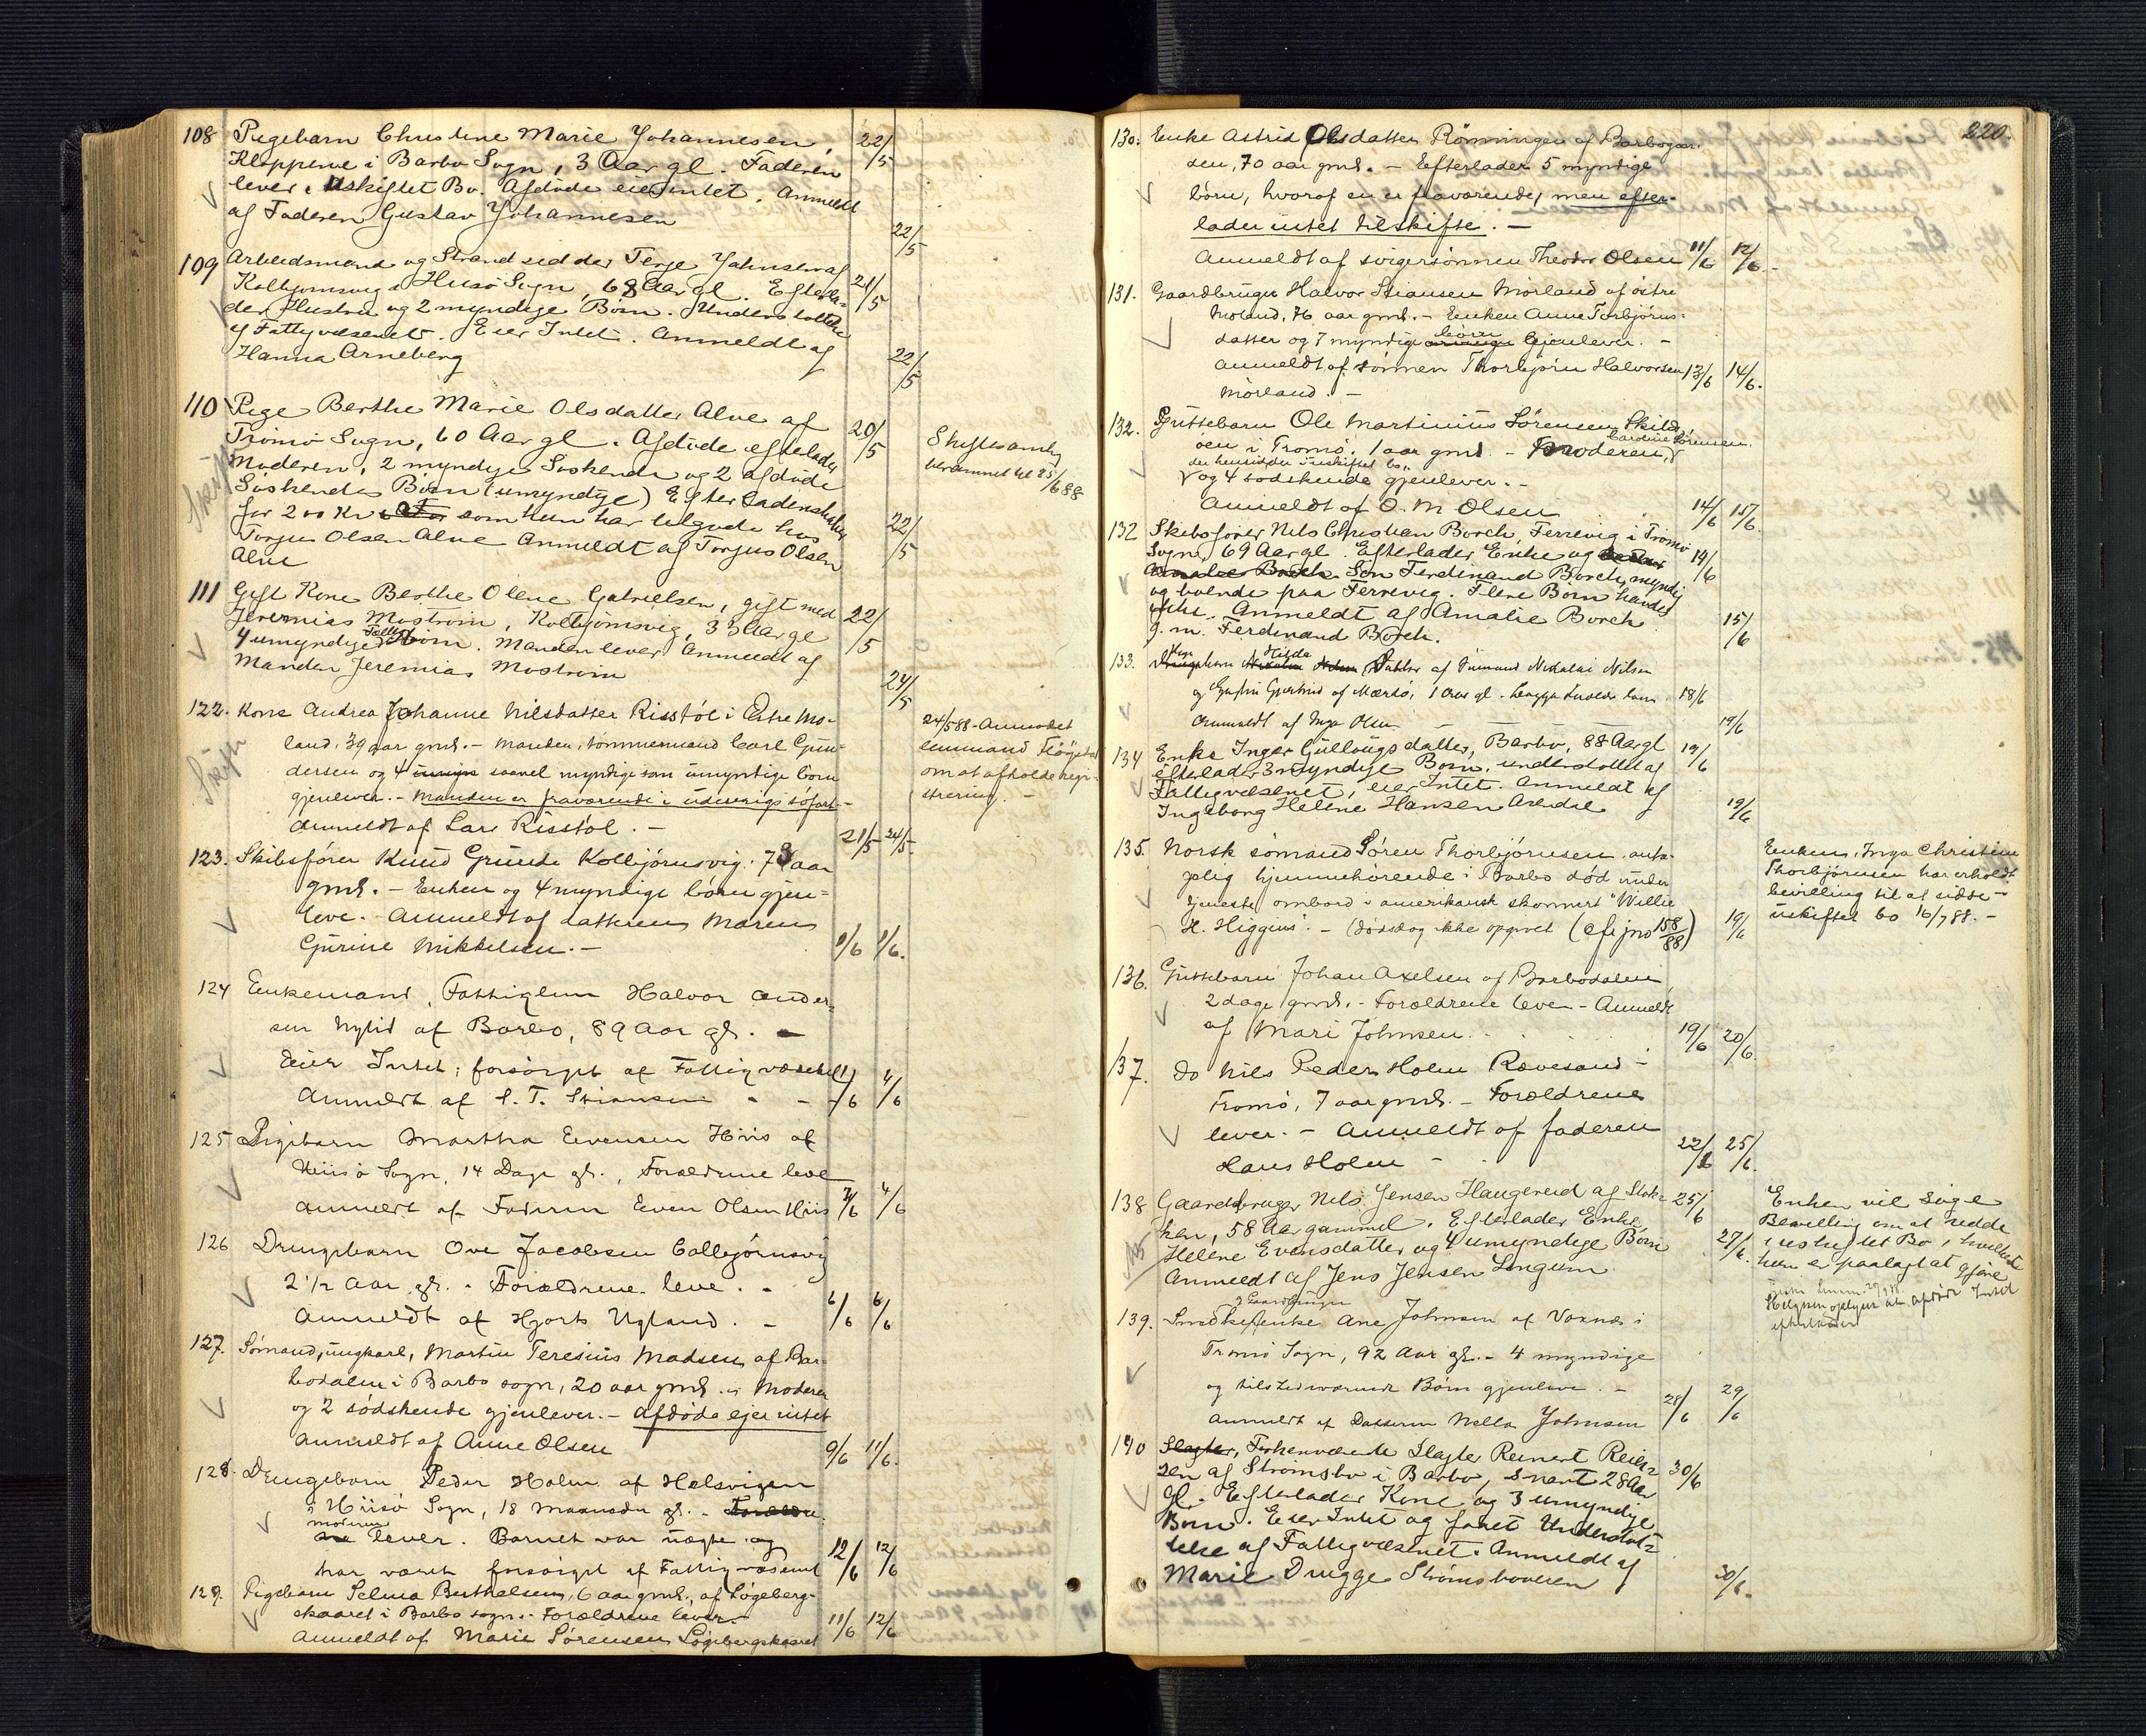 108 Pigebarn Christine Marie Johannesen, 22/5
Kleppene i Barbo Sogn, 3 Aar gl. Faderen
lever i Uskiftet Bo. Afdøde eier Intet. Anmeldt
af Faderen Gustav Johannesen 22/5
109 Arbeidsmand og Strandsidder Terje Johnsen af 21/5
Kolbjørnsvig i Hisø Sogn, 68 Aar gl. Efterla-
der Hustru og 2 myndige Børn. Understøttet
af Fattigvæsenet. Eier Intet. Anmeldt af
Hanna Arneberg 22/5
110 Pige Berthe Marie Olsdatter Alve af 20/5
Tromø Sogn, 60 Aar gl. Afdøde efterlader
Moderen, 2 myndige Søskende og 2 afdøde
Søskendes Børn (umyndige) Efterladenskaber
for 200 Kr som hun har tilgode hos
Torjus Olsen Alve Anmeldt af Torjus Olsen 22/5
Alve
Skifte
Skiftesamling
berammet til 25/6 88
111 Gift Kone Berthe Olene Gabrielsen, gift med 22/5
Jeremias Mostrøm, Kolbjørnsvig, 33 Aar gl
4 umyndige Børn. Manden lever Anmeldt af
Fattig
Manden Jeremias Mostrøm 24/5
122. Kone Andrea Johanne Nilsdatter Risstøl i Østre Mo-
land, 39 aar gml. – Manden, tømmermand Carl Gun-
dersen og 4 saavel myndige som umyndige børn
gjenlever. – Manden er fraværende i udenrigs søfart. –
Anmeldt af Lars Risstøl. – 21/5 24/5.
Skifte
24/5 88. Anmodet
lensmand Fløystad
om at afholde regi-
strering. –
123. Skibsfører Knud Grunde Kolbjørnsvig. 78 aar
gml. – Enken og 4 myndige børn gjen-
leve. – Anmeldt af datteren Maren
Gurine Mikkelsen. – 1/6 1/6.
124 Enkemand, Fattiglem Halvor Ander-
sen Nylid af Barbo, 89 Aar gl. –
Eier Intet; forsørget af Fattigvæsenet
Anmeldt af S. T. Stiansen - - 1/6 4/6
125 Pigebarn Martha Evensen Hiis af
Hiisø Sogn, 14 Dage gl., Forældrene leve
Anmeldt af Faderen Even Olsen Hiis 3/6 4/6
126 Drengebarn Ove Jacobsen Colbjørnsvig
2 1/2 Aar gl. - Forældrene leve. -
Anmeldt af Hjorth Ugland. - 6/6 6/6
127. Sømand, ungkarl, Martin Teresius Madsen af Bar-
bodalen i Barbo sogn, 20 aar gml. – Moderen
og 2 sødskende gjenlever. – Afdøde ejer intet
Anmeldt af Anne Olsen 9/6 11/6.
128. Drengebarn Peder Holm af Helsvigen
i Hiisø Sogn, 18 Maaneder gl. – Forældre
moderen
lever. Barnet var uægte og
har været forsørget af Fattigvæsenet 12/6 12/6
129. Pigebarn Selma Berthelsen, 6 aar gml., af Løgeberg-
skaaret i Barbo sogn. – Forældrene lever. –
Anmeldt af Marie Sørensen Løgebergskaaret 11/6 12/6
220.
130. Enke Astrid Olsdatter Rønningen af Barbogaar-
den, 70 aar gml. – Efterlader 5 myndige
børn, hvoraf en er fraværende, men efter-
lader intet til skifte. –
Anmeldt af svigersønnen Theodor Olsen 11/6 12/6.
131. Gaardbruger Halvor Stiansen Mørland af østre
Moland, 76 aar gml. – Enken Anne Torbjørns-
datter og 7 myndige børn gjenlever. –
Anmeldt af sønnen Thorbjørn Halvorsen 13/6 14/6.
Mørland. –
132. Guttebarn Ole Martinius Sørensen Skilds-
øen i Tromø, 1 aar gml. – Moderen, Caroline Sørensen
der hensidder i uskiftet bo,
og 4 sødskende gjenlever. –
Anmeldt af O. M. Olsen 14/6 15/6.
132 Skibsfører Nils Christian Borch, Ferrevig i Tromø
Sogn, 69 Aar gl. Efterlader Enke og 14/6
Amalie Borch. Søn Ferdinand Borch, myndig
og boende paa Ferrevig. Flere Børn havdes
ikke. Anmeldt af Amalie Borch 15/6
g. m. Ferdinand Borch.
133. Pigebarn Hilda Datter af Sømand Nikolai Nilsen
og Gustin Gjertrud af Mærdø, 1 Aar gl. 18/6
Anmeldt af Inga Olsen 19/6
134 Enke Inger Gullougsdatter, Barbo, 88 Aar gl 19/6
efterlader 3 myndige Børn, understøttet af
Fattigvæsenet, eier Intet. Anmeldt af
Ingeborg Helene Hansen Arendal 19/6
135. Norsk sømand Søren Thorbjørnsen, anta-
gelig hjemmehørende i Barbo død under
tjeneste ombord i amerikansk skonnert "Willie
H. Higgins". – (dødsdag ikke opgivet (cfr jno 158/88) 19/6
Enken, Inga Christine
Thorbjørnsen har erholdt
bevilling til at sidde –
uskiftet bo 16/7 88. –
136. Guttebarn Johan Axelsen af Barbodalen,
2 dage gml. – Forældrene lever – Anmeldt
af Mari Johnsen. 19/6 20/6.
137. Do Nils Peder Holm Rævesand –
Tromø, 7 aar gml. – Forældrene
lever. – Anmeldt af faderen
Hans Holm – 22/6 25/6.
138 Gaardbruger Nils Jensen Haugereid af Stok- 25/6
ken, 58 Aar gammel. Efterlader Enke,
Helene Evensdatter og 4 umyndige Børn 27/6.
Anmeldt af Jens Jensen Longum
Enken vil søge
Bevilling om at sidde
i uskiftet Bo, hvilket
hun er paalagt at gjøre
139. Smed & Gaardbruger enke Ane Johnsen af Vaxnæs i
Tromø Sogn, 92 Aar gl. – 4 myndige
og tilstedeværende Børn gjenleve. –
Anmeldt af Datteren Nella Johnsen 28/6 29/6
140 Slagter, Forhenværende Slagter Reinert Reier- 30/6
sen af Strømsbo i Barbo, snart 28 Aar
gl. Efterlader Kone og 3 umyndige
Børn. Eier Intet og faaet Understøt-
telse af Fattigvæsenet. Anmeldt af
Marie Drugge Strømsboveien 30/6.